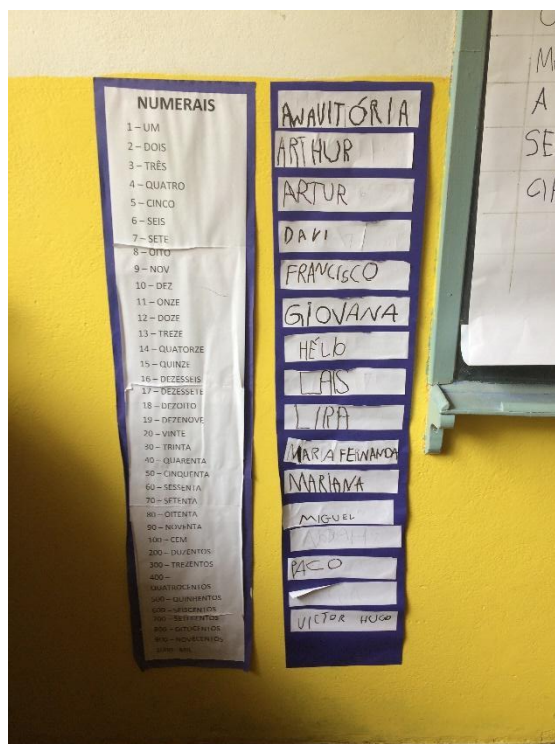 NUMERAIS
1 – UM
2 – DOIS
3 – TRÊS
4 – QUATRO
5 – CINCO
6 – SEIS
7 – SETE
8 – OITO
9 – NOV
10 – DEZ
11 – ONZE
12 – DOZE
13 – TREZE
14 – QUATORZE
15 – QUINZE
16 – DEZESSEIS
17 – DEZESSETE
18 – DEZOITO
19 – DEZENOVE
20 – VINTE
30 – TRINTA
40 – QUARENTA
50 – CINQUENTA
60 – SESSENTA
70 – SETENTA
80 – OITENTA
90 – NOVENTA
100 – CEM
200 – DUZENTOS
300 – TREZENTOS
400 –
QUATROCENTOS
500 – QUINHENTOS
600 – SEISCENTOS
700 – SETECENTOS
800 – OITOCENTOS
900 – NOVECENTOS
ANAVITÓRIA
ARTHUR
ARTUR
DAVI
FRANCISCO
GIOVANA
HÉLIO
LAIS
LIRA
MARIA FERNANDA
MARIANA
MIGUEL
PACO
VICTOR HUGO
M
A
SE